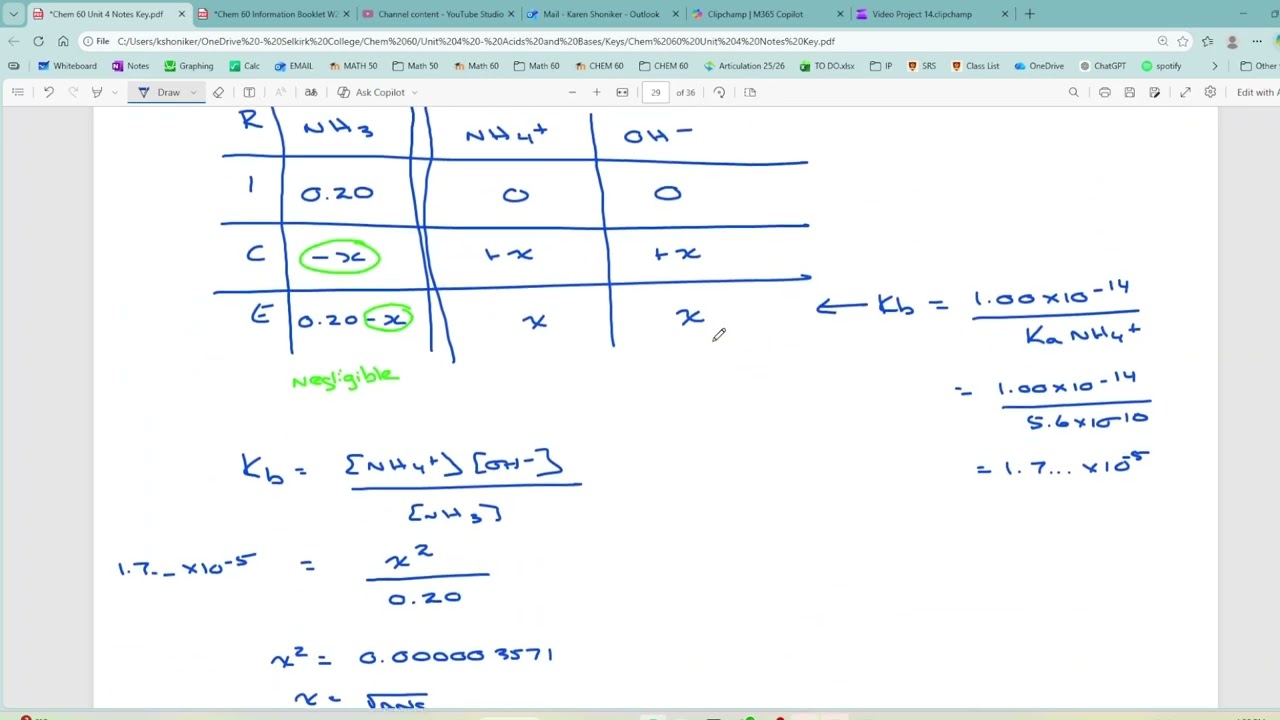 *Chem 60 Unit 4 Notes Key.pdf
*Chem 60 Information Booklet W2
Channel content - YouTube Studio
Mail - Karen Shoniker - Outlook
Clipchamp | M365 Copilot
Video Project 14.clipchamp
File C:/Users/kshoniker/OneDrive%20-%20Selkirk%20College/Chem%2060/Unit%204%20-%20Acids%20and%20Bases/Keys/Chem%2060%20Unit%204%20Notes%20Key.pdf
Whiteboard Notes Graphing Calc EMAIL MATH 50 Math 50 Math 60 Math 60 CHEM 60 CHEM 60 Articulation 25/26 TO DO.xlsx IP SRS Class List OneDrive ChatGPT spotify Other
Draw Ask Copilot 29 of 36 Edit with A
R NH3 NH4+ OH-
I 0.20 0 0
C -x +x +x
E 0.20 -x x x
Negligible
← Kb = 1.00x10-14
Ka NH4+
= 1.00x10-14
5.6x10-10
= 1.7... x10-5
Kb = [NH4+][OH-]
[NH3]
1.7.._ x10-5 = x2
0.20
x2 = 0.000003571
x = √ans